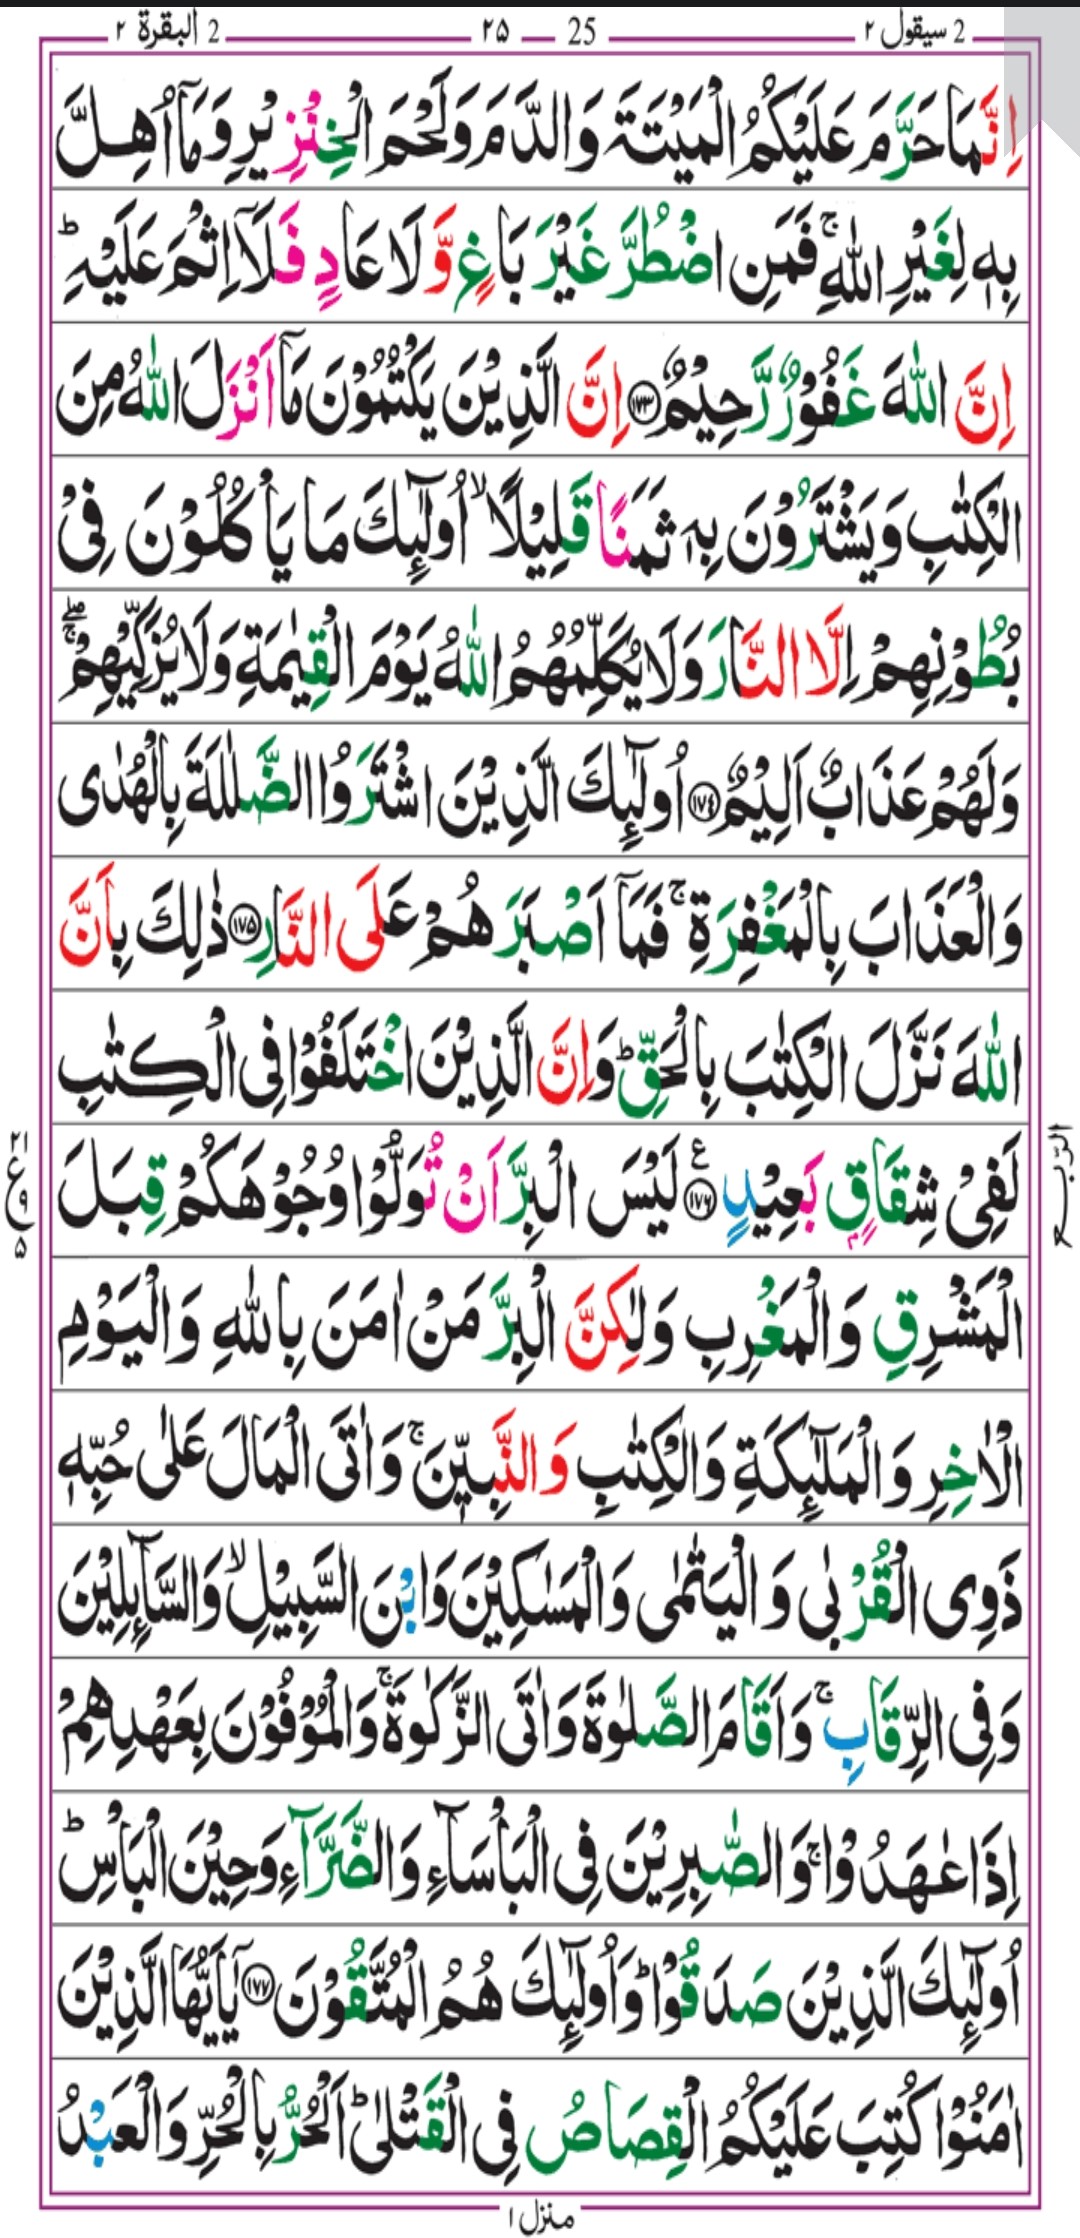 2 سيقول ٢ 25 ٢٥ 2 البقرة ٢
اِنَّمَا حَرَّمَ عَلَيْكُمُ الْمَيْتَةَ وَالدَّمَ وَلَحْمَ الْخِنْزِيْرِ وَمَاۤ اُهِلَّ
بِهٖ لِغَيْرِ اللّٰهِ ۚ فَمَنِ اضْطُرَّ غَيْرَ بَاغٍ وَّلَا عَادٍ فَلَاۤ اِثْمَ عَلَيْهِ ؕ
اِنَّ اللّٰهَ غَفُوْرٌ رَّحِيْمٌ ۝۱۷۳ اِنَّ الَّذِيْنَ يَكْتُمُوْنَ مَاۤ اَنْزَلَ اللّٰهُ مِنَ
الْكِتٰبِ وَيَشْتَرُوْنَ بِهٖ ثَمَنًا قَلِيْلًا ۙ اُولٰٓئِكَ مَا يَاْكُلُوْنَ فِيْ
بُطُوْنِهِمْ اِلَّا النَّارَ وَلَا يُكَلِّمُهُمُ اللّٰهُ يَوْمَ الْقِيٰمَةِ وَلَا يُزَكِّيْهِمْ ۖۚ
وَلَهُمْ عَذَابٌ اَلِيْمٌ ۝۱۷٤ اُولٰٓئِكَ الَّذِيْنَ اشْتَرَوُا الضَّلٰلَةَ بِالْهُدٰى
وَالْعَذَابَ بِالْمَغْفِرَةِ ۚ فَمَاۤ اَصْبَرَهُمْ عَلَى النَّارِ ۝۱۷۵ ذٰلِكَ بِاَنَّ
اللّٰهَ نَزَّلَ الْكِتٰبَ بِالْحَقِّ ؕ وَاِنَّ الَّذِيْنَ اخْتَلَفُوْا فِى الْكِتٰبِ
لَفِيْ شِقَاقٍۭ بَعِيْدٍ ۝۱۷۶ ع لَيْسَ الْبِرَّ اَنْ تُوَلُّوْا وُجُوْهَكُمْ قِبَلَ
الرّبع
٢١
ع
٩
٥
الْمَشْرِقِ وَالْمَغْرِبِ وَلٰكِنَّ الْبِرَّ مَنْ اٰمَنَ بِاللّٰهِ وَالْيَوْمِ
الْاٰخِرِ وَالْمَلٰٓئِكَةِ وَالْكِتٰبِ وَالنَّبِيّٖنَ ۚ وَاٰتَى الْمَالَ عَلٰى حُبِّهٖ
ذَوِى الْقُرْبٰى وَالْيَتٰمٰى وَالْمَسٰكِيْنَ وَابْنَ السَّبِيْلِ ۙ وَالسَّآئِلِيْنَ
وَفِى الرِّقَابِ ۚ وَاَقَامَ الصَّلٰوةَ وَاٰتَى الزَّكٰوةَ ۚ وَالْمُوْفُوْنَ بِعَهْدِهِمْ
اِذَا عٰهَدُوْا ۚ وَالصّٰبِرِيْنَ فِى الْبَاْسَآءِ وَالضَّرَّآءِ وَحِيْنَ الْبَاْسِ ؕ
اُولٰٓئِكَ الَّذِيْنَ صَدَقُوْا ؕ وَاُولٰٓئِكَ هُمُ الْمُتَّقُوْنَ ۝۱۷۷ يٰۤاَيُّهَا الَّذِيْنَ
اٰمَنُوْا كُتِبَ عَلَيْكُمُ الْقِصَاصُ فِى الْقَتْلٰى ؕ اَلْحُرُّ بِالْحُرِّ وَالْعَبْدُ
منزل ١